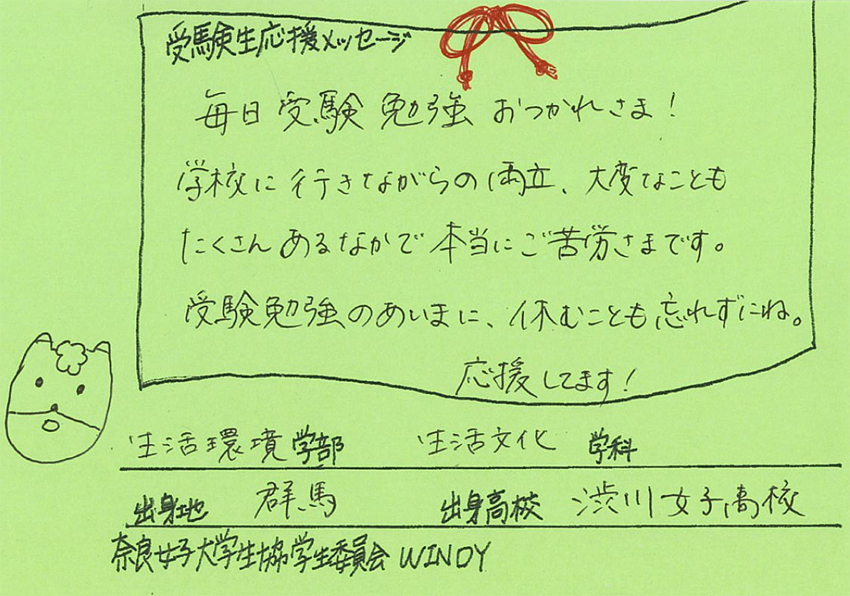 受験生応援メッセージ
毎日受験勉強おつかれさま!
学校に行きながらの両立、大変なことも
たくさんあるなかで本当にご苦労さまです。
受験勉強のあいまに、休むことも忘れずにね。
応援してます!
生活環境学部 生活文化学科
出身地 群馬 出身高校 渋川女子高校
奈良女子大学生協学生委員会 WINDY